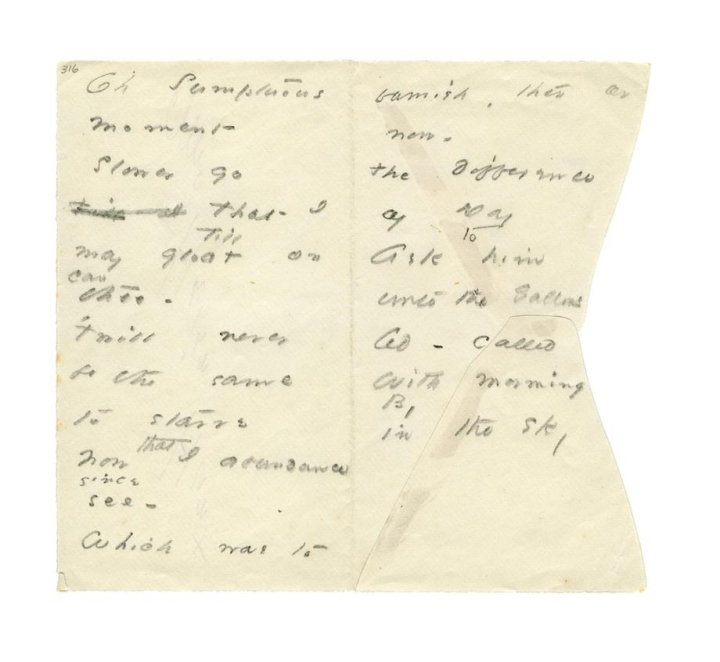 316
Oh Sumptuous
moment
Slower go
that I
Till
may gloat on
can
thee -
'twill never
be the same
to starve
that
now I abundance
since
see -
Which was to
famish, then or
now -
the difference
of Day
to
Ask him
unto the Gallows
led - called
With morning
By
in the sky